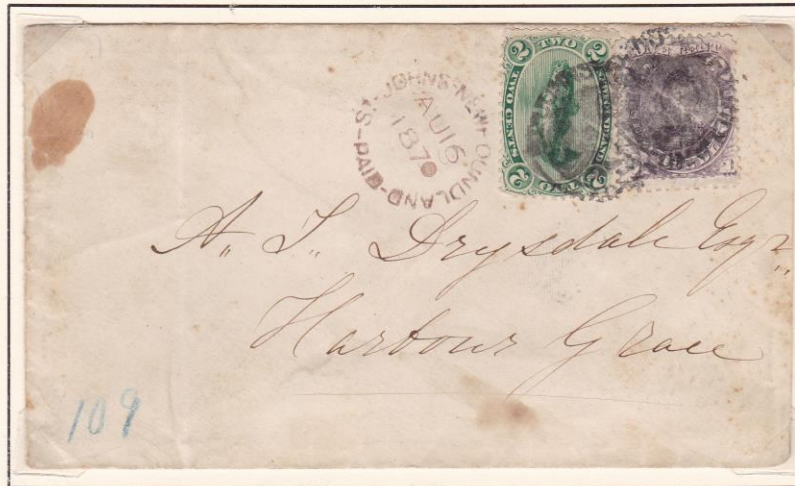 ST. JOHNS NEWFOUNDLAND
AU 16
187
PAID
2 TWO 2
TWO CENTS
NEWFOUNDLAND
2 TWO 2
A. T. Drysdale Esqr
Harbour Grace
109